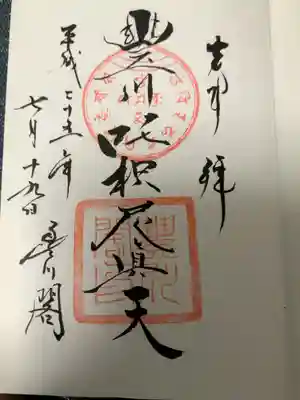 奉拝
豊川吒枳尼眞天
平成二十五年
七月十九日
豊川閣